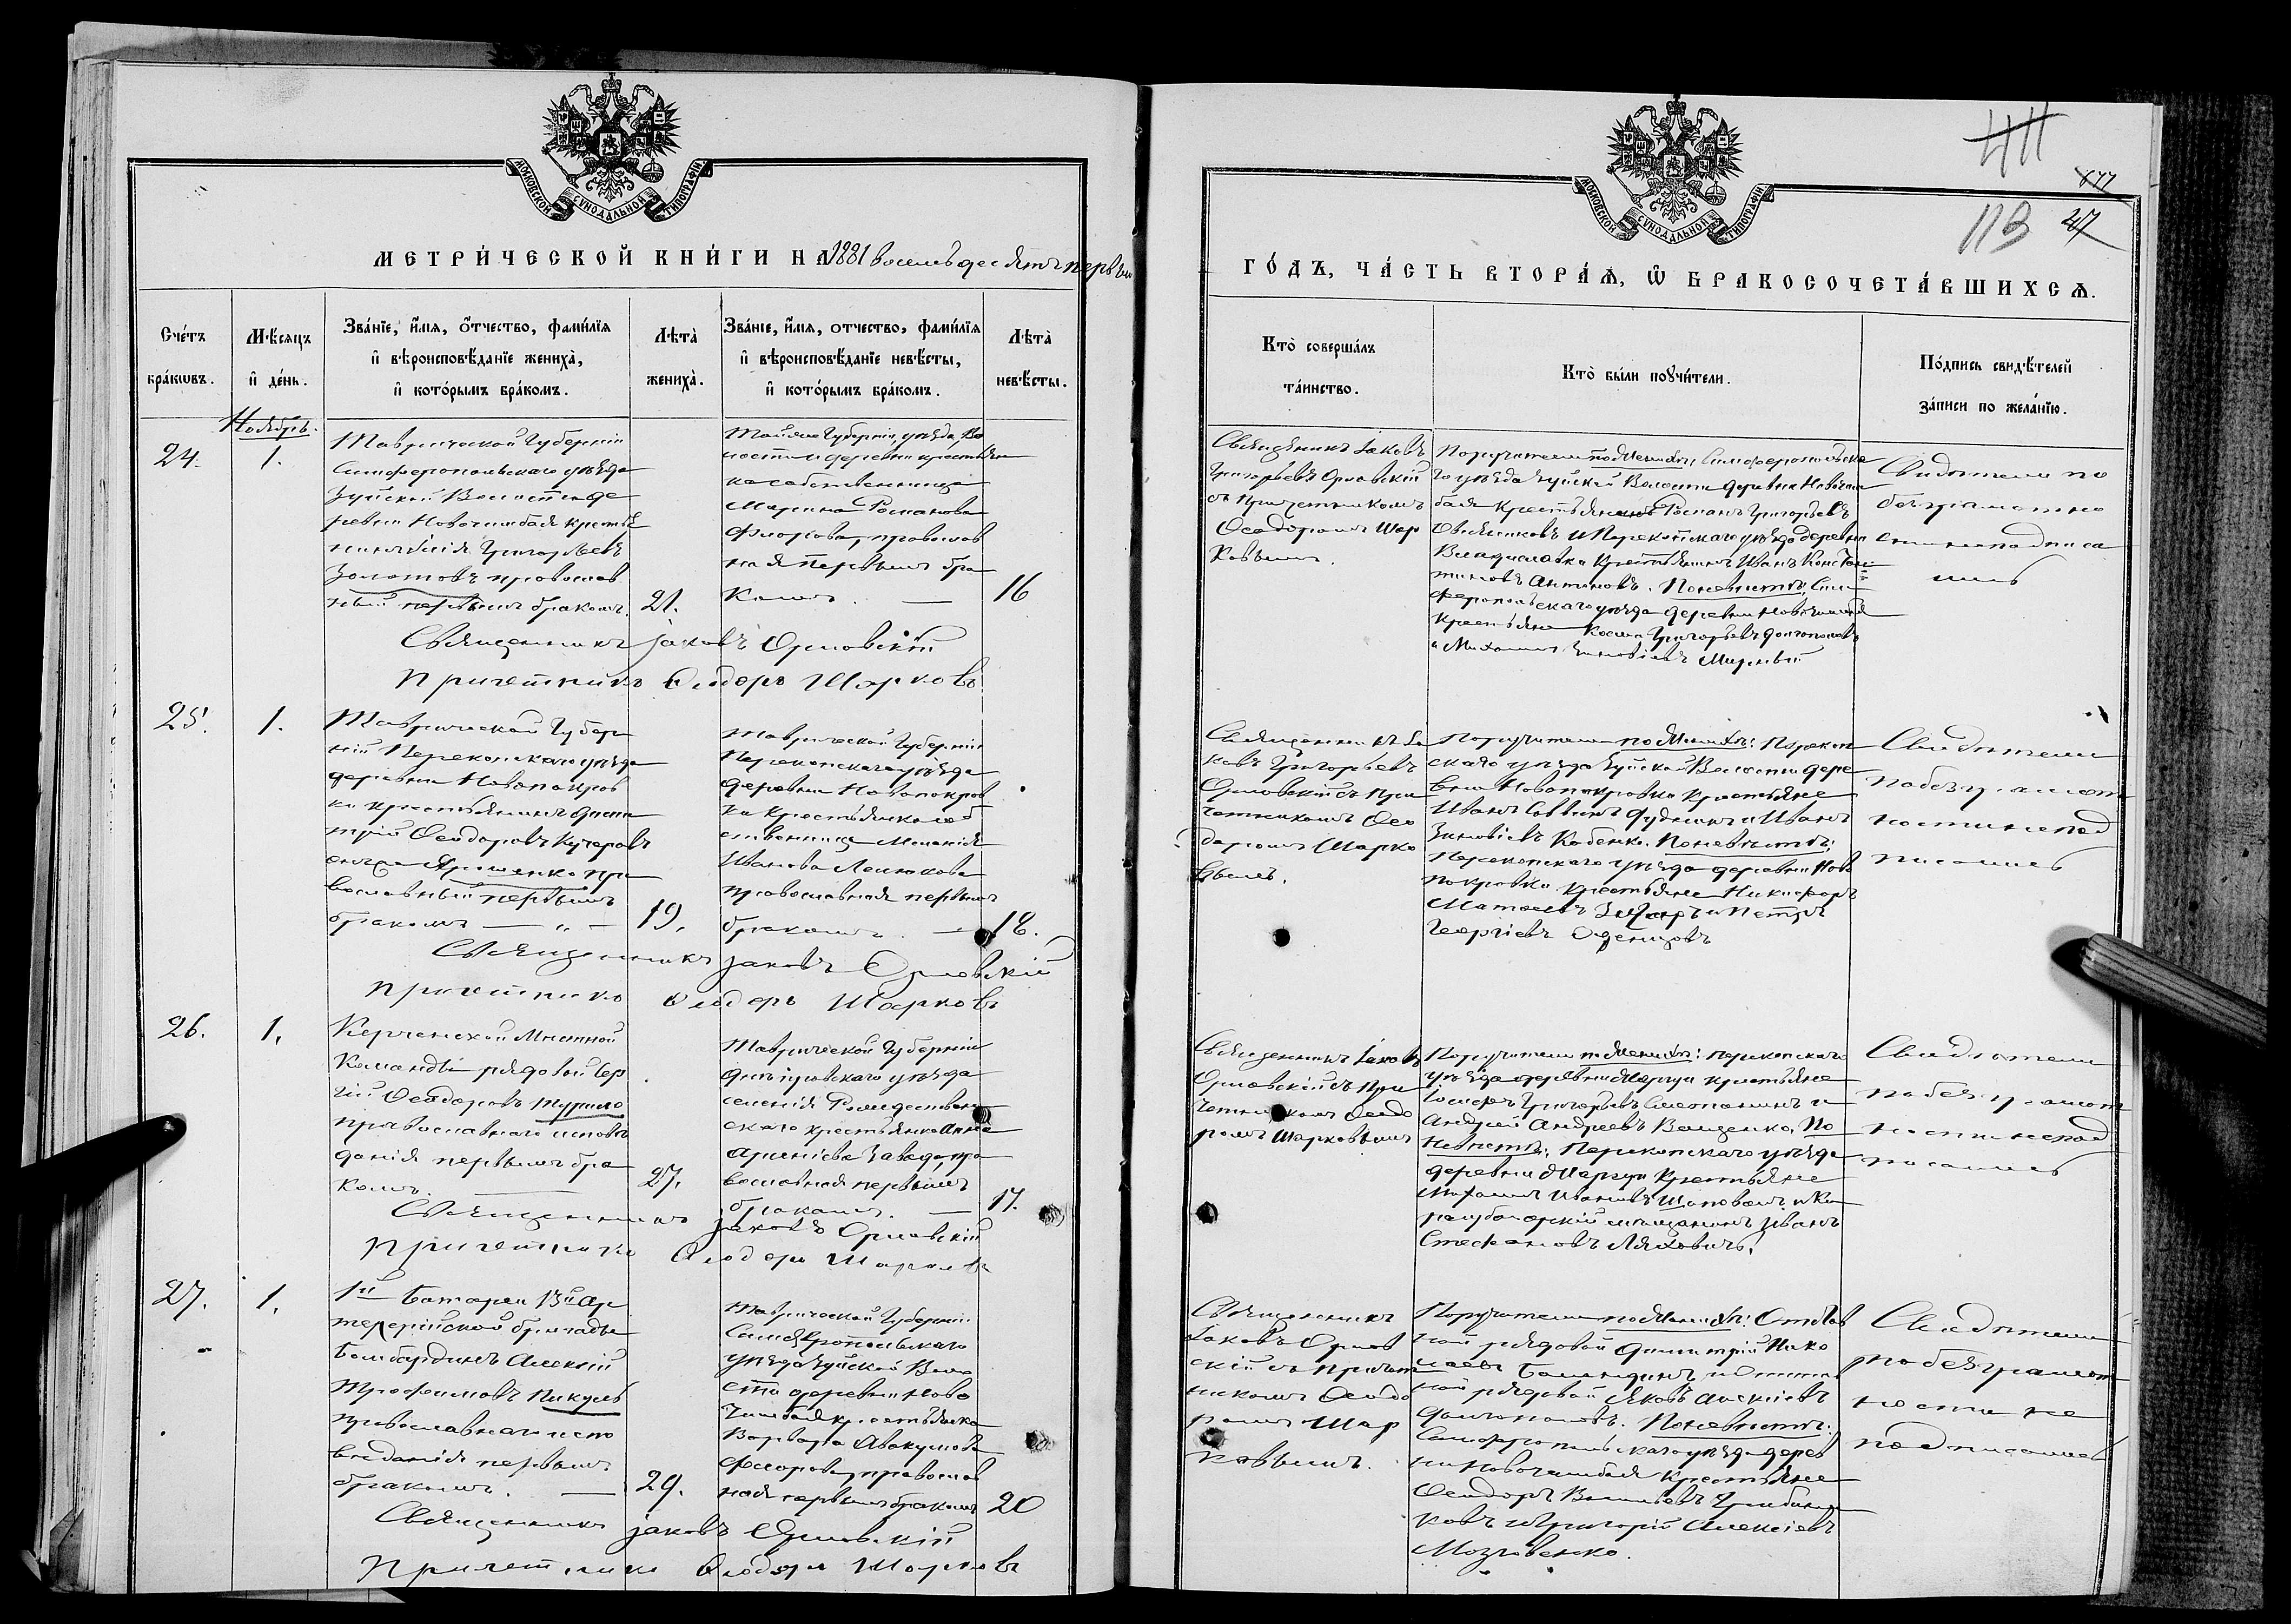 МОСКОВСКОЙ СѴНОДАЛЬНОЙ ТИПОГРАФІИ
МЕТРИ́ЧЕСКОЙ КНИ́ГИ НА 1881 восемьдесятъ первый
Сче́тъ бра́кωвъ.
Мѣ́сяцъ и҆ де́нь.
Зва́нїе, и҆́мѧ, ѻ҆́тчество, фами́лїѧ и҆ вѣроисповѣ́данїе жениха̀, и҆ кото́рымъ бра́комъ.
Лѣта̀ жениха̀.
Зва́нїе, и҆́мѧ, отчество, фами́лїѧ и҆ вѣроисповѣ́данїе невѣ́сты, и҆ кото́рымъ бра́комъ.
Лѣта̀ невѣ́сты.
Ноябрь.
24.
1.
Таврической Губерніи
Симферопольскаго уѣзда
Зуйской Волости де
ревни Новочимбая крестья
нинъ Григорьевъ
Золотовъ православ
ный первымъ бракомъ.
21.
Той же Губерніи, уѣзда, Во
лости и деревни крестьян
ка собственница
Марина Романова
православ
ная первымъ бра
комъ.
16
Священникъ Іаковъ Орловскій
Причетникъ Ѳеодоръ Шарковъ
25.
1.
Таврической Губер
ніи Перекопскаго уѣзда
деревни Новопокров
ки крестьянинъ Дими
трій Ѳеодоровъ Кучеровъ
онъ же Ярошенко пра
вославный первымъ
бракомъ
19.
Таврической Губерніи
Перекопскаго уѣзда
деревни Новопокров
ки крестьянка соб
ственница Меланія
Иванова
православная первымъ
бракомъ.
18.
Священникъ Іаковъ Орловскій
Причетникъ Ѳеодоръ Шарковъ
26.
1.
Керченской Мѣстной
Команды рядовой Сер
гій Ѳеодоровъ
православнаго исповѣ
данія первымъ бра
комъ.
27.
Таврической Губерніи
Днѣпровскаго уѣзда
селенія Рождествен
скаго крестьянка Анна
Арсеніева пра
вославная первымъ
бракомъ.
17.
Священникъ Іаковъ Орловскій
Причетникъ Ѳеодоръ Шарковъ
27.
1.
1й Батареи 13й Ар
тиллерійской бригады
Бомбардиръ Алексій
Трофимовъ Пикуль
православнаго испо
вѣданія первымъ
бракомъ.
29.
Таврической Губерніи
Симферопольскаго
уѣзда Зуйской Воло
сти деревни Ново
чимбая крестьянка
Варвара Авакумова
православ
ная первымъ бракомъ
20
Священникъ Іаковъ Орловскій
Причетникъ Ѳеодоръ Шарковъ
МОСКОВСКОЙ СѴНОДАЛЬНОЙ ТИПОГРАФІИ
113
ГО́ДЪ, ЧА́СТЬ ВТОРА́Ѧ, Ѽ БРАКОСОЧЕТА́ВШИХСѦ.
Кто̀ соверша́лъ та́инство.
Кто̀ бы́ли поꙋчи́тели.
По́дпись свидѣ́телей за́писи по жела́нїю.
Священникъ Іаковъ
Григорьевъ Орловскій
съ Причетникомъ
Ѳеодоромъ Шар
ковымъ.
Поручители по Женихѣ: Симферопольска
го уѣзда Зуйской Волости деревни Новочим
бая Крестьянинъ Романъ Григорьевъ
Овсянниковъ и Перекопскаго уѣзда деревни
Владиславки Крестьянинъ Иванъ Констан
тиновъ Антиновъ. По невѣстѣ: Сим
феропольскаго уѣзда деревни Новочимбая
Крестьяне Косма Григорьевъ Долгополовъ
и Михаилъ Зиновіевъ Мирный
Свидѣтели по
безграмотно
сти не подписа
лись
Священникъ Іа
ковъ Григорьевъ
Орловскій съ При
четникомъ Ѳео
доромъ Шарко
вымъ.
Поручители по Женихѣ: Перекоп
скаго уѣзда Зуйской Волости дере
вни Новопокровки Крестьяне
Иванъ Саввинъ и Иванъ
Зиновіевъ Кобенко. По невѣстѣ:
Перекопскаго уѣзда деревни Ново
покровки крестьяне Никифоръ
Матвеевъ и Петръ
Георгіевъ
Свидѣтели
по безграмот
ности не под
писались
Священникъ Іаковъ
Орловскій съ При
четникомъ Ѳеодо
ромъ Шарковымъ
Поручители по Женихѣ: Перекопскаго
уѣзда деревни крестьяне
Іосифъ Григорьевъ Сметанинъ и
Андрей Андреевъ Ващенко. По
невѣстѣ: Перекопскаго уѣзда
деревни Крестьяне
Михаилъ Ивановъ Шаповалъ и Ка
расубазарскій мѣщанинъ Иванъ
Стефановъ Ляховичъ.
Свидѣтели
по безграмот
ности не под
писались
Священникъ
Іаковъ Орлов
скій съ Причет
никомъ Ѳеодо
ромъ Шар
ковымъ.
Поручители по Женихѣ: Отстав
ной рядовой Димитрій Нико
лаевъ и Отстав
ной рядовой Яковъ Алексіевъ
Долгополовъ. По невѣстѣ:
Симферопольскаго уѣзда дерев
ни Новочимбая Крестьяне
Ѳеодоръ Васильевъ Грибини
ковъ и Григорій Алексіевъ
Мозговенко.
Свидѣтели
по безграмот
ности не
подписались